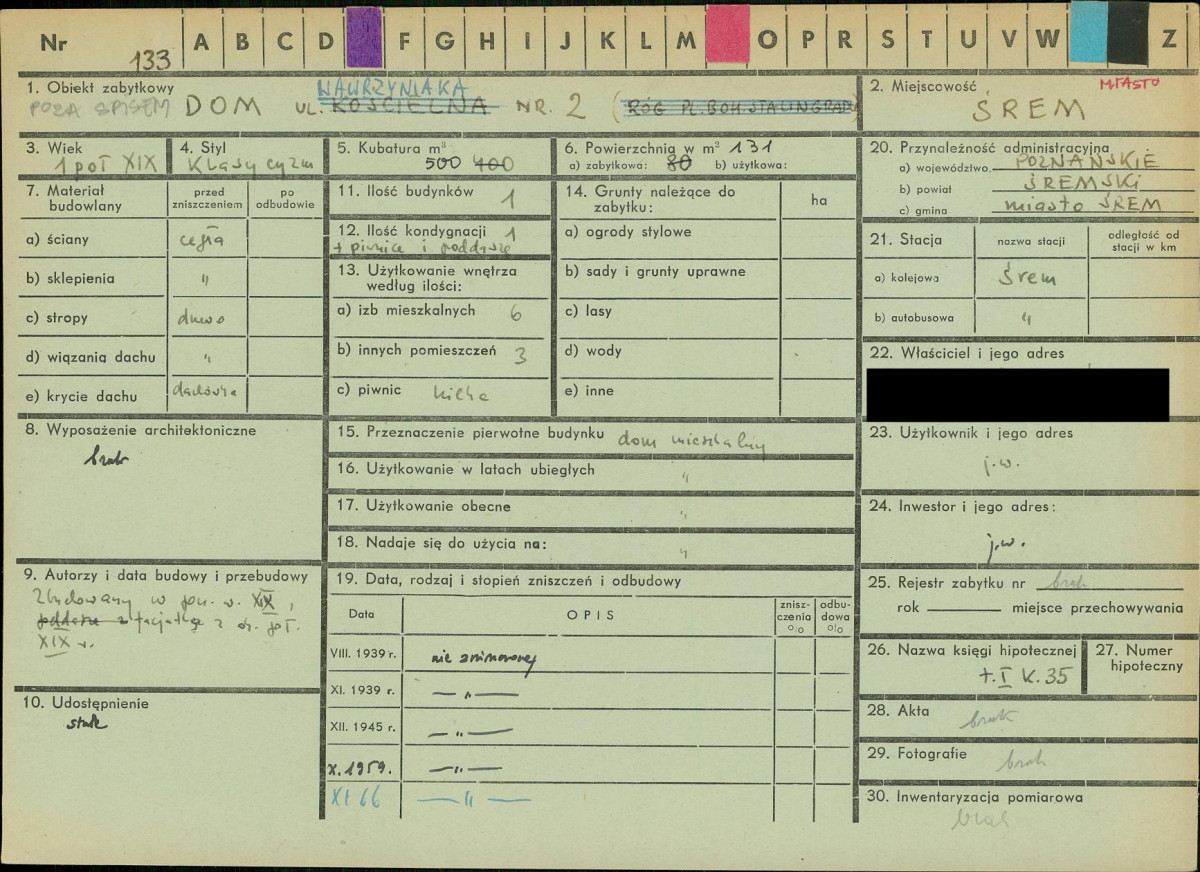 Nr 133 A B C D F G H I J K L M O P R S T U V W Z
1. Obiekt zabytkowy
POZA SPISEM DOM UL. KOŚCIELNA NR. 2 (RÓG PL. BOH. STALINGRADU)
WAWRZYNIAKA
2. Miejscowość MIASTO
ŚREM
3. Wiek
1 poł XIX
4. Styl
Klasycyzm
5. Kubatura m³
500 400
6. Powierzchnia w m² 131
a) zabytkowa: 80 b) użytkowa:
20. Przynależność administracyjna
a) województwo POZNAŃSKIE
b) powiat ŚREMSKI
c) gmina miasto ŚREM
7. Materiał budowlany
przed zniszczeniem
po odbudowie
a) ściany cegła
b) sklepienia "
c) stropy drewo
d) wiązania dachu "
e) krycie dachu dachówka
11. Ilość budynków 1
12. Ilość kondygnacji 1
+ piwnice i poddasze
13. Użytkowanie wnętrza
według ilości:
a) izb mieszkalnych 6
b) innych pomieszczeń 3
c) piwnic kilka
14. Grunty należące do
zabytku:
ha
a) ogrody stylowe
b) sady i grunty uprawne
c) lasy
d) wody
e) inne
21. Stacja
nazwa stacji
odległość od
stacji w km
a) kolejowa Śrem
b) autobusowa "
22. Właściciel i jego adres
8. Wyposażenie architektoniczne
brak
15. Przeznaczenie pierwotne budynku dom mieszkalny
16. Użytkowanie w latach ubiegłych "
17. Użytkowanie obecne "
18. Nadaje się do użycia na: "
23. Użytkownik i jego adres
j.w.
24. Inwestor i jego adres:
j.w.
9. Autorzy i data budowy i przebudowy
Zbudowany w poł. w. XIX,
poddasze z facjatką z dr. poł.
XIX w.
10. Udostępnienie
stałe
19. Data, rodzaj i stopień zniszczeń i odbudowy
Data
OPIS
znisz-
czenia
%
odbu-
dowa
%
VIII. 1939 r. nie zniszczony
XI. 1939 r. — " —
XII. 1945 r. — " —
X. 1959. — " —
XI 66 — " —
25. Rejestr zabytku nr brak
rok miejsce przechowywania
26. Nazwa księgi hipotecznej
t. I K. 35
27. Numer
hipoteczny
28. Akta brak
29. Fotografie brak
30. Inwentaryzacja pomiarowa
brak